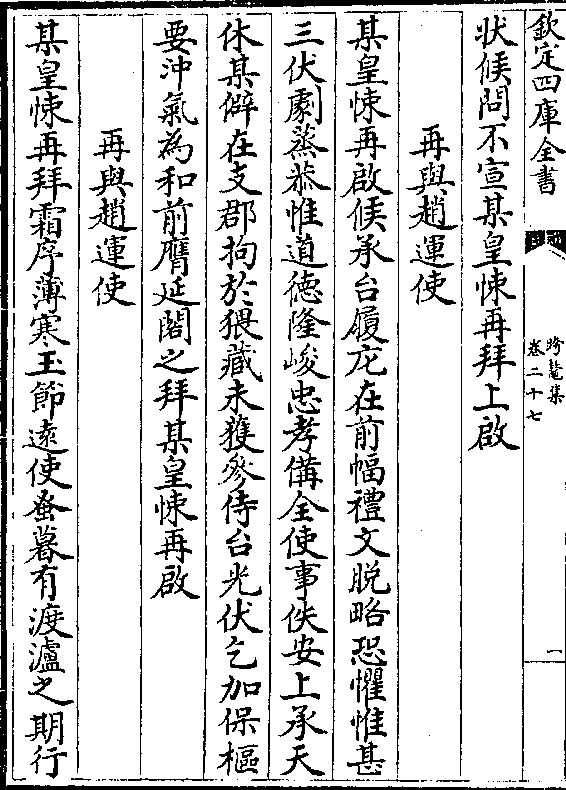 欽定四庫全書
跨鼇集
卷二十七
一
狀候問不宣某皇悚再拜上啟
再與趙運使
某皇悚再啟候承台履庀在前幅禮文脱略恐懼惟甚
三伏劇蒸恭惟道德隆峻忠孝備全使事佚安上承天
休某僻在支郡拘於猥藏未獲參侍台光伏乞加保樞
要沖氣為和前膺延閣之拜某皇悚再啟
再與趙運使
某皇悚再拜霜序薄寒玉節遠使蚤暮有渡瀘之期行